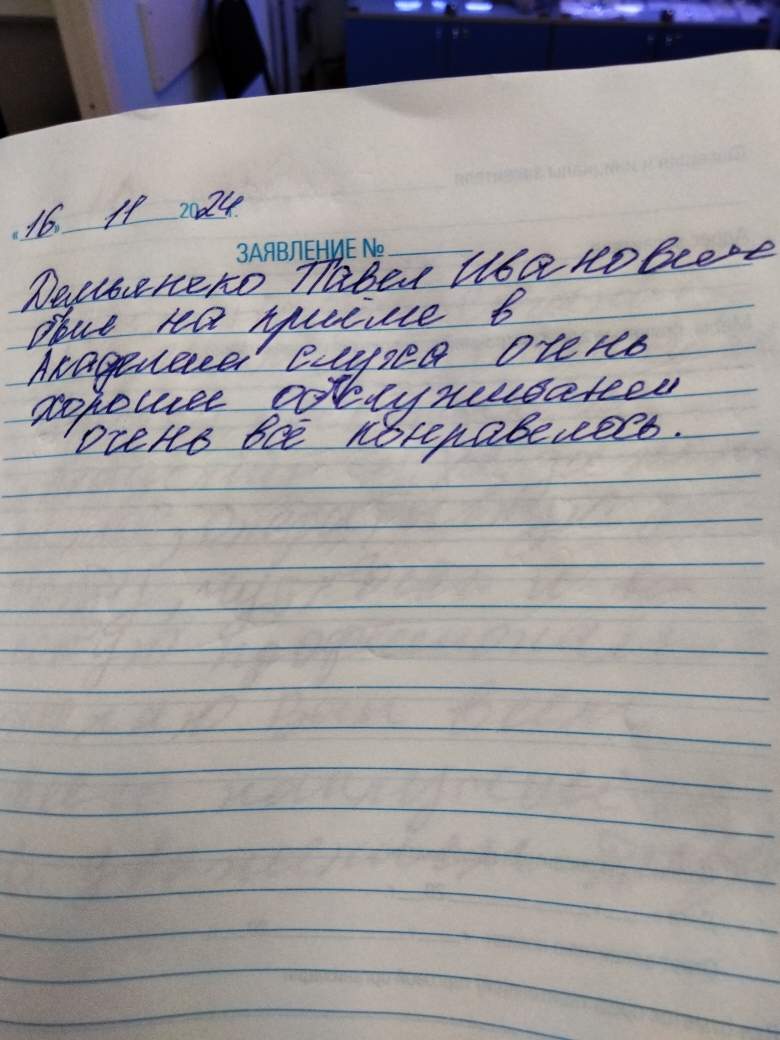 «16» 11 2024 г.
ЗАЯВЛЕНИЕ №
Демьянеко Павел Иванович
был на приёме в
Академии слуха очень
хорошее обслуживание
очень всё понравелось.